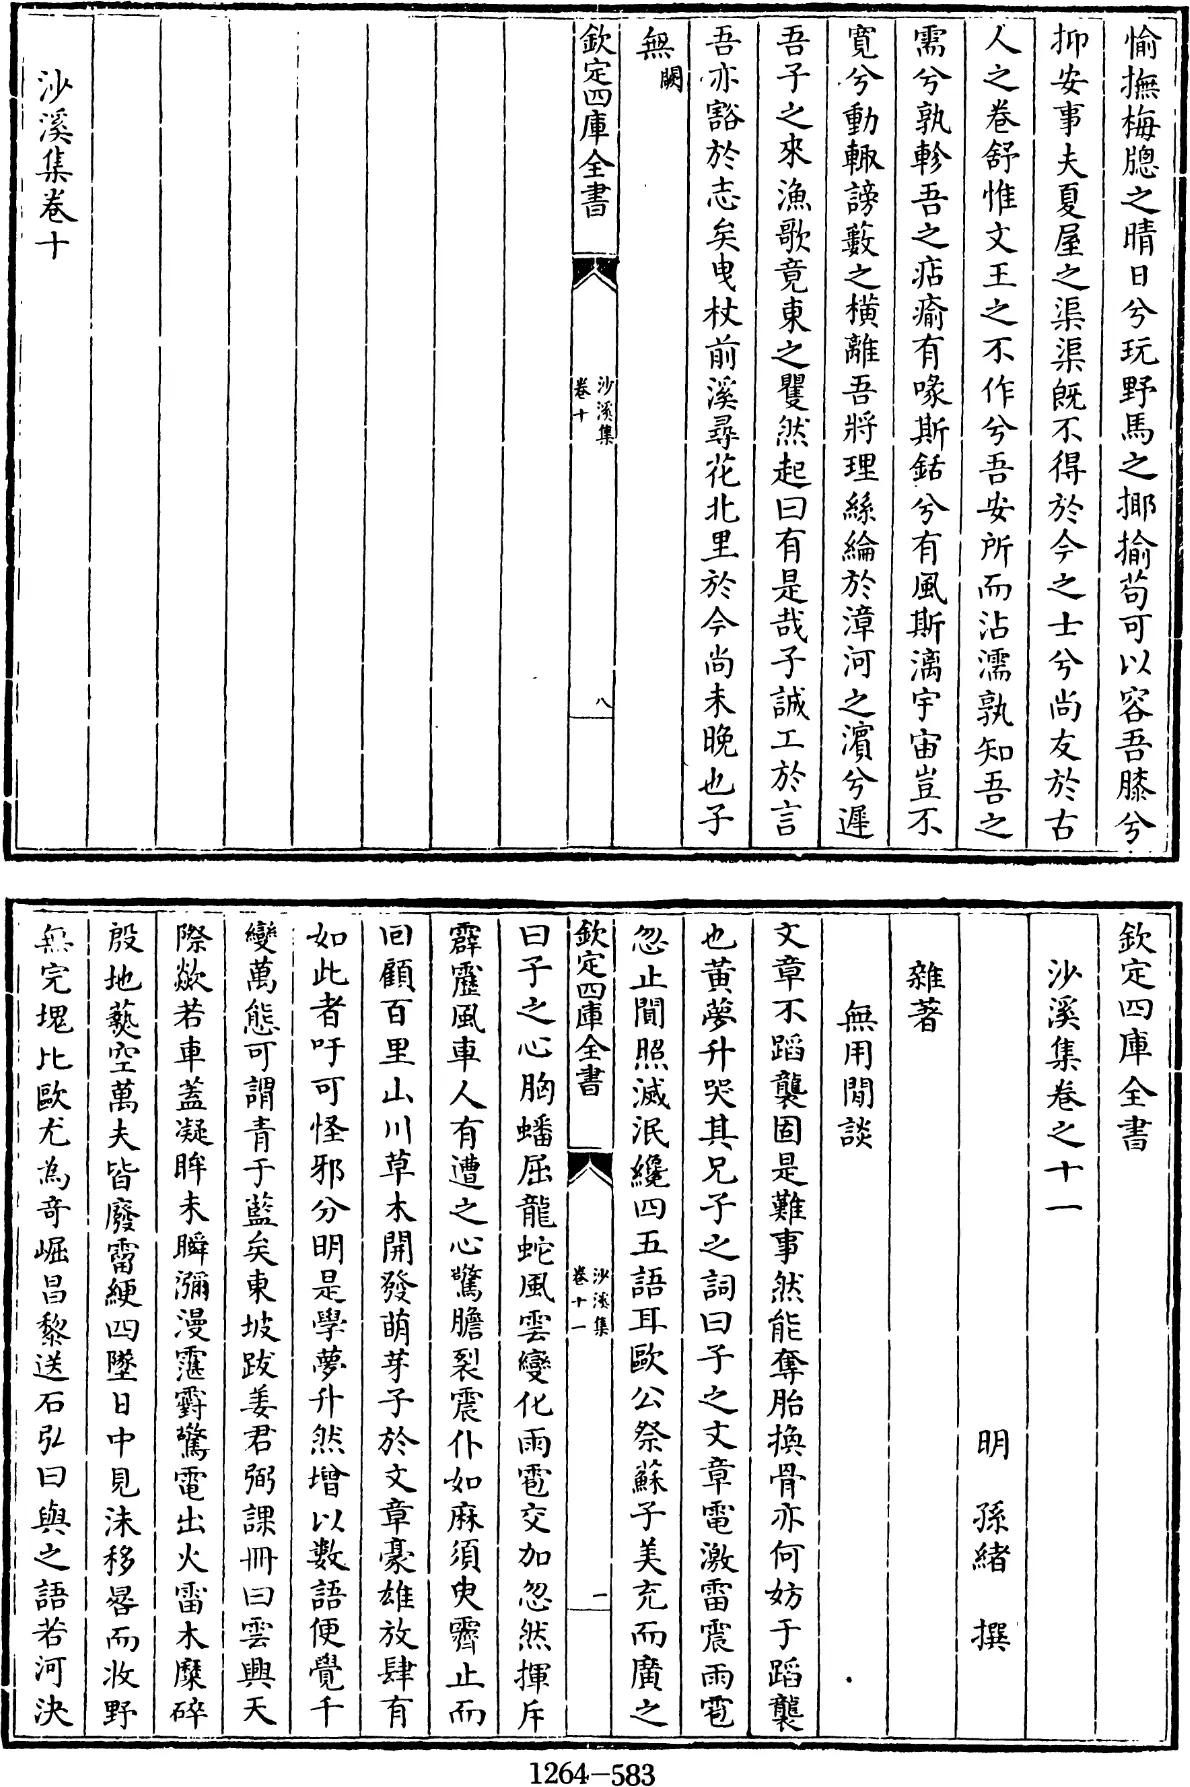 愉撫梅牕之晴日兮玩野馬之揶揄茍可以容吾膝兮
抑安事夫夏屋之渠渠既不得於今之士兮尚友於古
人之卷舒惟文王之不作兮吾安所而沾濡孰知吾之
需兮孰軫吾之痁瘉有喙斯銛兮有風斯漓宇宙豈不
寛兮動輙謗藪之橫離吾將理絲綸於漳河之濵兮遲
吾子之來漁歌竟東之矍然起曰有是哉子誠工於言
吾亦豁於志矣曳杖前溪尋花北里於今尚未晚也子
無闕
欽定四庫全書
沙溪集
卷十
八
沙溪集卷十
欽定四庫全書
沙溪集卷之十一
明 孫緒 撰
雜著
無用閒談
文章不蹈襲固是難事然能奪胎換骨亦何妨于蹈襲
也黃夢升哭其兄子之詞曰子之文章電激雷震雨雹
忽止闃照滅泯纔四五語耳歐公祭蘇子美充而廣之
欽定四庫全書
沙溪集
卷十一
一
曰子之心胸蟠屈龍蛇風雲變化雨雹交加忽然揮斥
霹靂風車人有遭之心驚膽裂震仆如麻須臾霽止而
回顧百里山川草木開發萌芽子於文章豪雄放肆有
如此者吁可怪邪分明是學夢升然增以數語便覺千
變萬態可謂青于藍矣東坡跋姜君弼課冊曰雲興天
際歘若車蓋凝眸未瞬瀰漫霮䨴驚電出火雷木糜碎
殷地爇空萬夫皆廢霤綆四墜日中見沬移晷而收野
無完塊比歐尤為奇崛昌黎送石弘曰與之語若河決